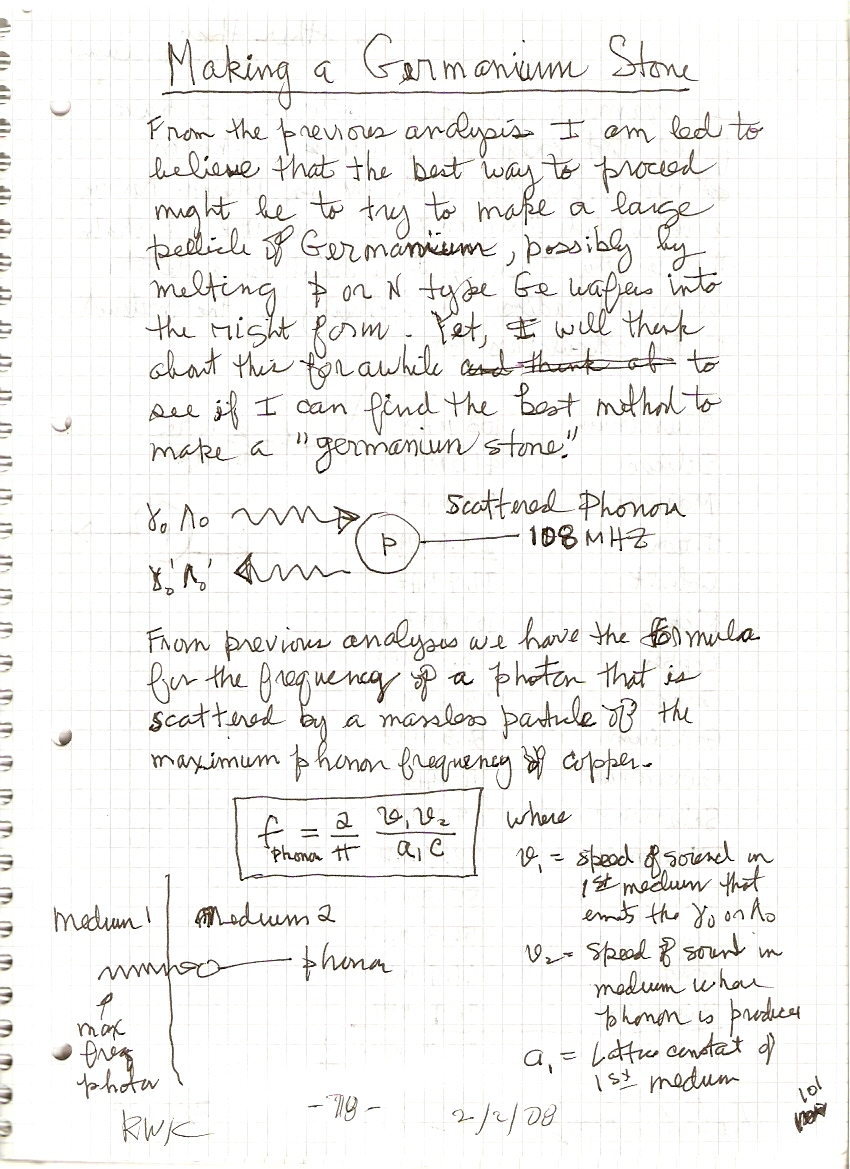 Making a Germanium Stone
From the previous analysis I am led to
believe that the best way to proceed
might be to try to make a large
pellicle of Germanium, possibly by
melting p or N type Ge wafers into
the right form. Yet, I will think
about this for awhile and think of to
see if I can find the best method to
make a "germaniun stone."
γ₀ Λ₀
Scattered Phonon
P
108 MHZ
γ₀' Λ₀'
From previous analysis we have the formula
for the frequency of a photon that is
scattered by a massless particle of the
maximum phonon frequency of copper.
f phonon = 2/π v₁v₂/a₁c
where
v₁ = speed of sound in
1st medium that
emits the γ₀ or Λ₀
Medium 1
Medium 2
phonon
v₂ = speed of sound in
medium where
phonon is produces
max
freq
photon
a₁ = Lattice constat of
1st medium
RWK
-78-
2/2/08
101